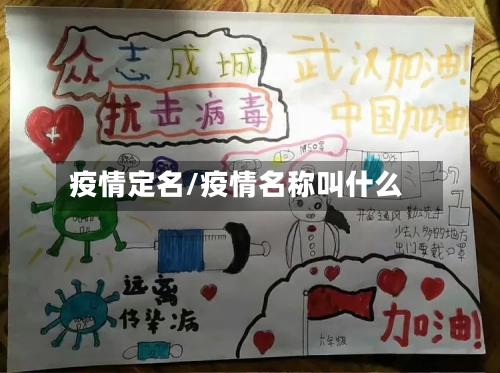 众志成城
抗击病毒
武汉加油!
中国加油!
疫情定名/疫情名称叫什么
开窗通风 勤洗手
少去人多的地方
出门要戴口罩
远离
传染病
加油!
六年级